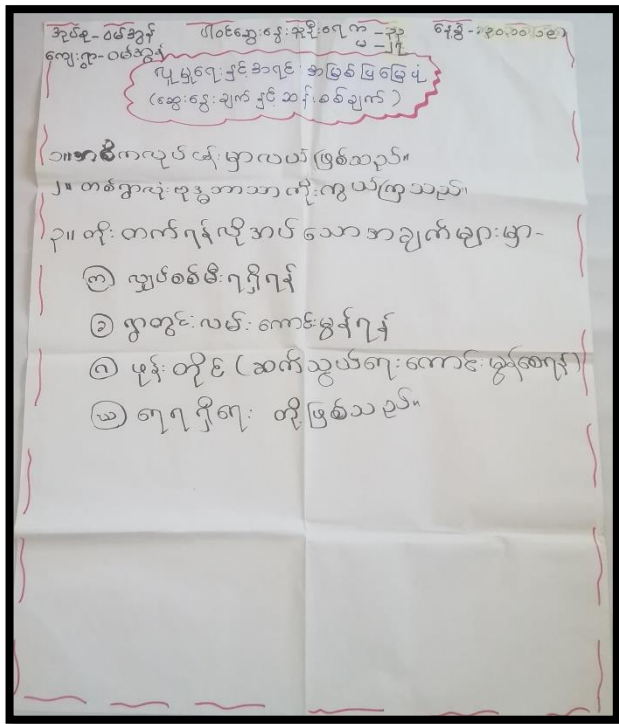 အုပ်စု-ဝမ်အွန် ပါဝင်ဆွေးနွေးသူဦးရေ ကျ - ၃၃ နေ့စွဲ - ၃၀.၁၀.၁၉
ကျေးရွာ-ဝမ်အွန် မ - ၂၇
လူမှုရေးနှင့်အရင်းအမြစ်ပြမြေပုံ
(ဆွေးနွေးချက်နှင့်ဆန်းစစ်ချက်)
၁။ အဓိကလုပ်ငန်းမှာလယ်ဖြစ်သည်။
၂။ တစ်ရွာလုံးဗုဒ္ဓဘာသာကိုးကွယ်ကြသည်။
၃။ တိုးတက်ရန်လိုအပ်သောအချက်များမှာ-
(က) လျှပ်စစ်မီးရရှိရန်
(ခ) ရွာတွင်းလမ်းကောင်းမွန်ရန်
(ဂ) ဖုန်းတိုင် (ဆက်သွယ်ရေးကောင်းမွန်စေရန်)
(ဃ) ရေရရှိရေး တို့ဖြစ်သည်။